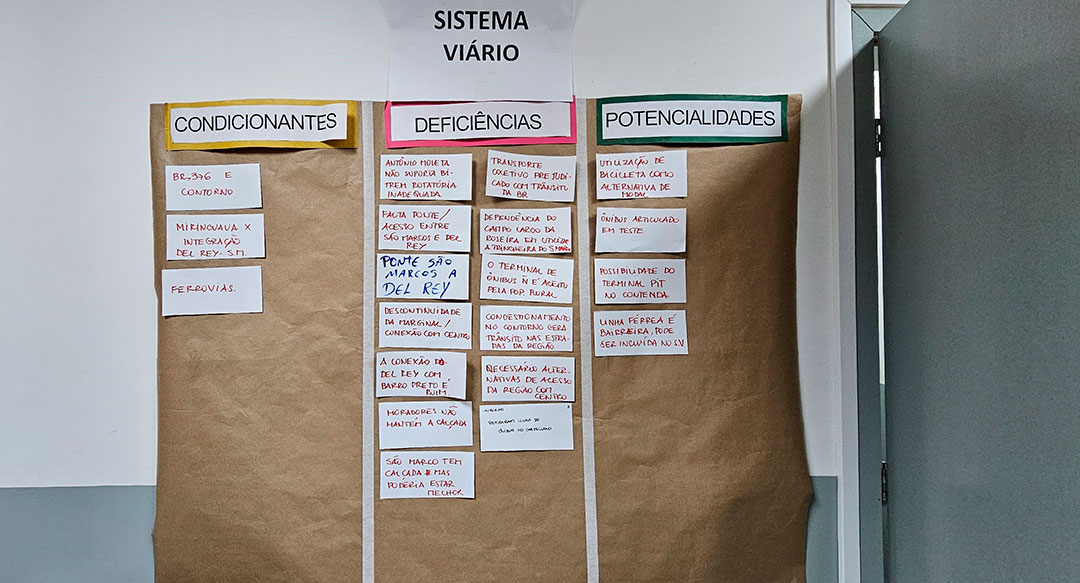 SISTEMA
VIÁRIO
CONDICIONANTES
BR.376 E
CONTORNO
MIRINGUAVA X
INTEGRAÇÃO
DEL REY - S.M.
FERROVIAS.
DEFICIÊNCIAS
ANTÔNIO MOLETA
NÃO SUPORTA BI-
TREM ROTATÓRIA
INADEQUADA
FALTA PONTE/
ACESSO ENTRE
SÃO MARCOS E DEL
REY
PONTE SÃO
MARCOS A
DEL REY
DESCONTINUIDADE
DA MARGINAL/
CONEXÃO COM CENTRO
A CONEXÃO DO
DEL REY COM
BARRO PRETO É
RUIM
MORADORES NÃO
MANTÉM A CALÇADA
SÃO MARCO TEM
CALÇADA MAS
PODERIA ESTAR
MELHOR
TRANSPORTE
COLETIVO PREJUDI-
CADO COM TRÂNSITO
DA BR
DEPENDÊNCIA DO
CAMPO LARGO DA
ROSEIRA EM UTILIZAR
A TRINCHEIRA DO S.MARCO
O TERMINAL DE
ÔNIBUS Ñ É ACEITO
PELA POP. RURAL
CONGESTIONAMENTO
NO CONTORNO GERA
TRÂNSITO NAS ESTRA-
DAS DA REGIÃO
NECESSÁRIO ALTER-
NATIVAS DE ACESSO
DA REGIÃO COM
CENTRO
LINHA DE
ÔNIBUS NO
POTENCIALIDADES
UTILIZAÇÃO DE
BICICLETA COMO
ALTERNATIVA DE
MODAL
ÔNIBUS ARTICULADO
EM TESTE
POSSIBILIDADE DO
TERMINAL PIT
NO CONTENDA.
LINHA FÉRREA É
BAIRREIRA, PODE
SER INCLUÍDA NO S.V.